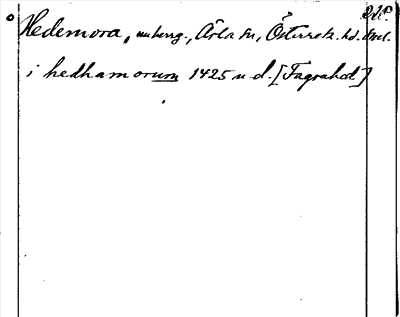 Hedemora, numeng., Ärla sn, Österrek. hd. Södml.
i hedhamorum 1425 u. d. [Fagrahed]